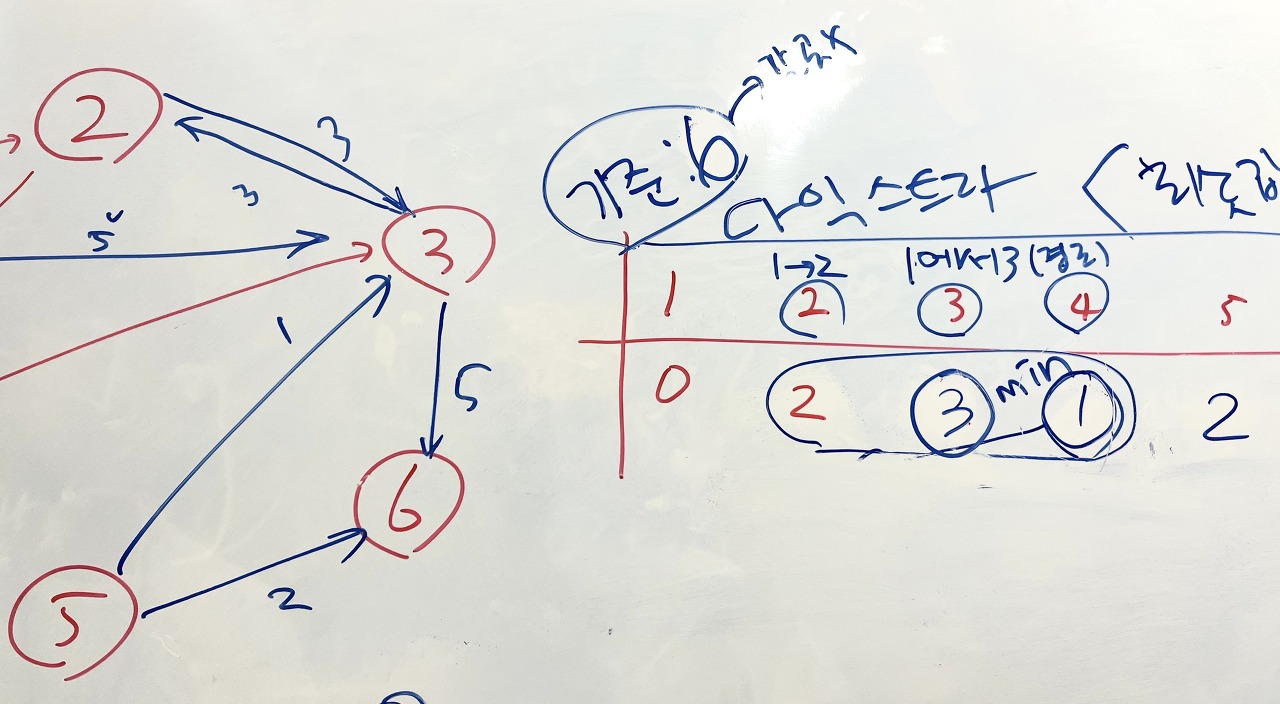 2
3
3
5
3
1
5
6
5
2
기준:6
다익스트라
1→2
1에서3(경로)
1 2 3 4 5
0 2 3 min 1 2